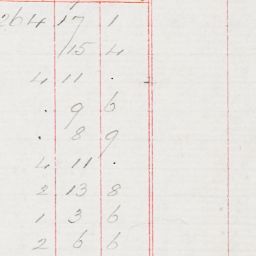 264 17 1
15 4
4 11 .
. 9 6
. 8 9
4 11 .
2 13 8
1 3 6
2 6 6